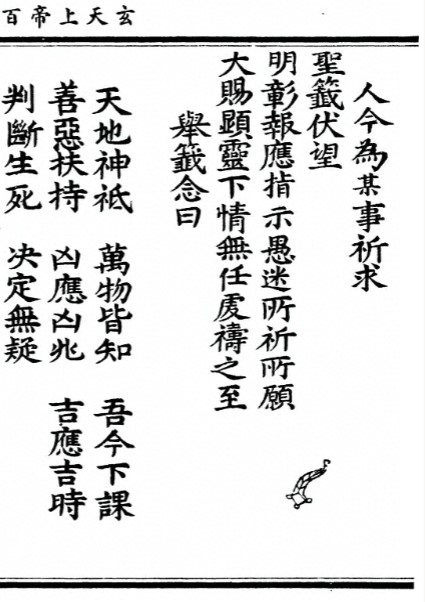 玄天上帝百
人今為某事祈求
聖籤伏望
明彰報應指示愚迷所祈所願
大賜顯靈下情無任虔禱之至
舉籤念曰
天地神祇 萬物皆知 吾今下課
善惡扶持 凶應凶兆 吉應吉時
判斷生死 决定無疑